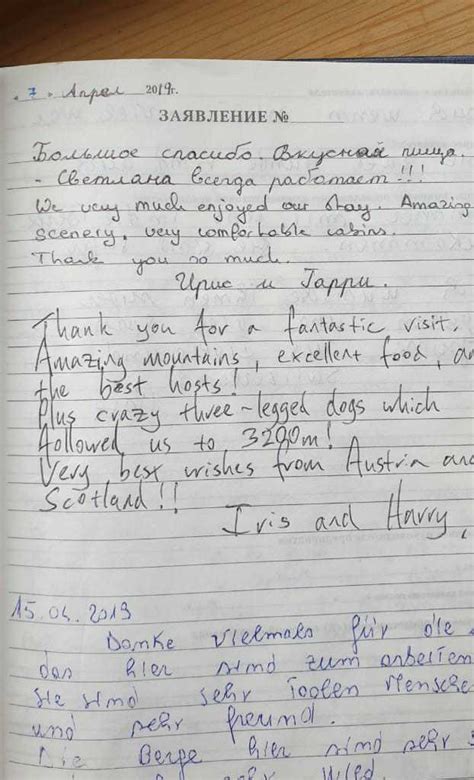 7. Апрел 2019г.
ЗАЯВЛЕНИЕ №
Большое спасибо. Вкусная пища.
- Светлана всегда работает!!!
We very much enjoyed our stay. Amazing
scenery, very comfortable cabins.
Thank you so much.
Ирис и Гарри.
Thank you for a fantastic visit.
Amazing mountains, excellent food, an
the best hosts!
Plus crazy three-legged dogs which
followed us to 3200m!
Very best wishes from Austria and
Scotland!!
Iris and Harry,
15.04.2019
Danke vielmals für die
das hier sind zum arbeiten
Sie sind sehr Mensche
und sehr freund.
Die Berge hier sind sehr
sehr